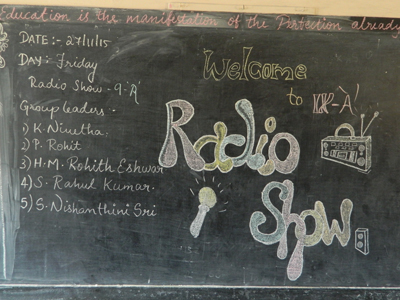 Education is the manifestation of the Perfection already
DATE:- 27/11/15
DAY:- Friday
Radio Show - 9 'A'
Group leaders:-
1) K. Nivetha
2) P. Rohit
3) H.M. Rohith Eshwar
4) S. Rahul Kumar.
5) S. Nishanthini Sri
Welcome
to IX-'A'
Radio
Show